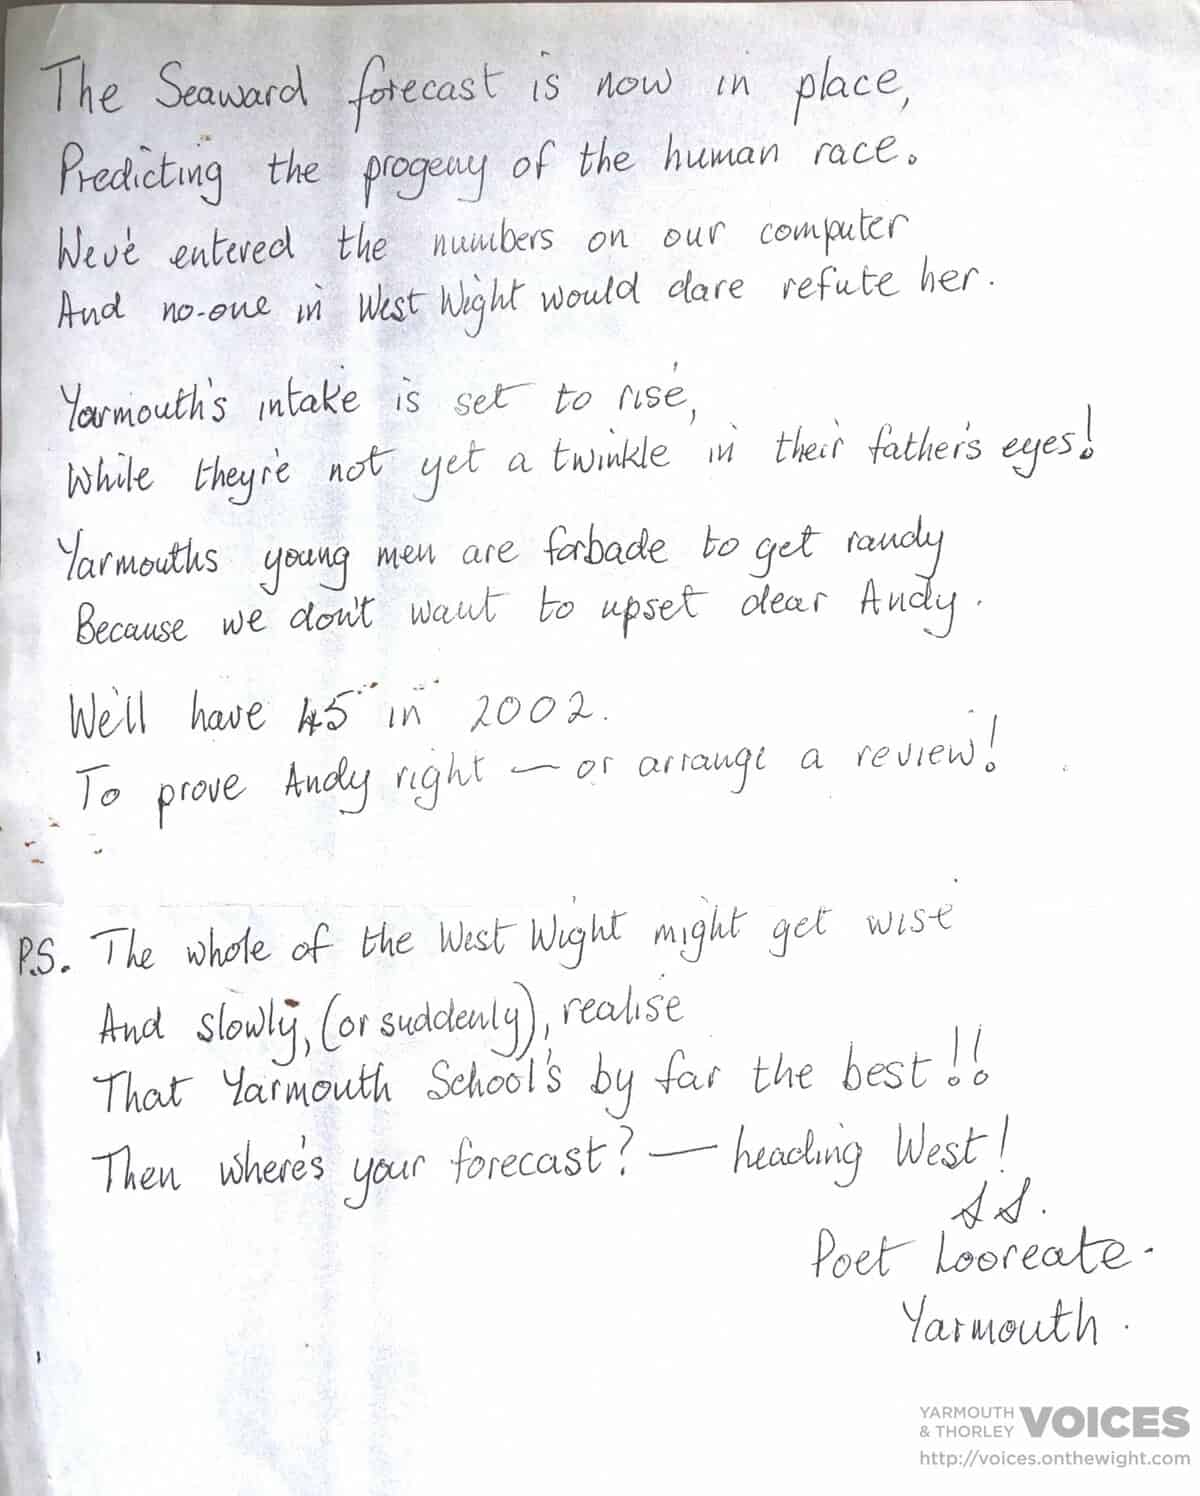 The Seaward forecast is now in place,
Predicting the progeny of the human race.
We've entered the numbers on our computer
And no-one in West Wight would dare refute her.
Yarmouth's intake is set to rise,
While they're not yet a twinkle in their father's eyes!
Yarmouths young men are forbade to get randy
Because we don't want to upset dear Andy.
We'll have 45 in 2002.
To prove Andy right — or arrange a review!
P.S. The whole of the West Wight might get wise
And slowly, (or suddenly), realise
That Yarmouth School's by far the best!!
Then where's your forecast? — heading West!
S S.
Poet Looreate.
Yarmouth.
YARMOUTH & THORLEY VOICES
http://voices.onthewight.com